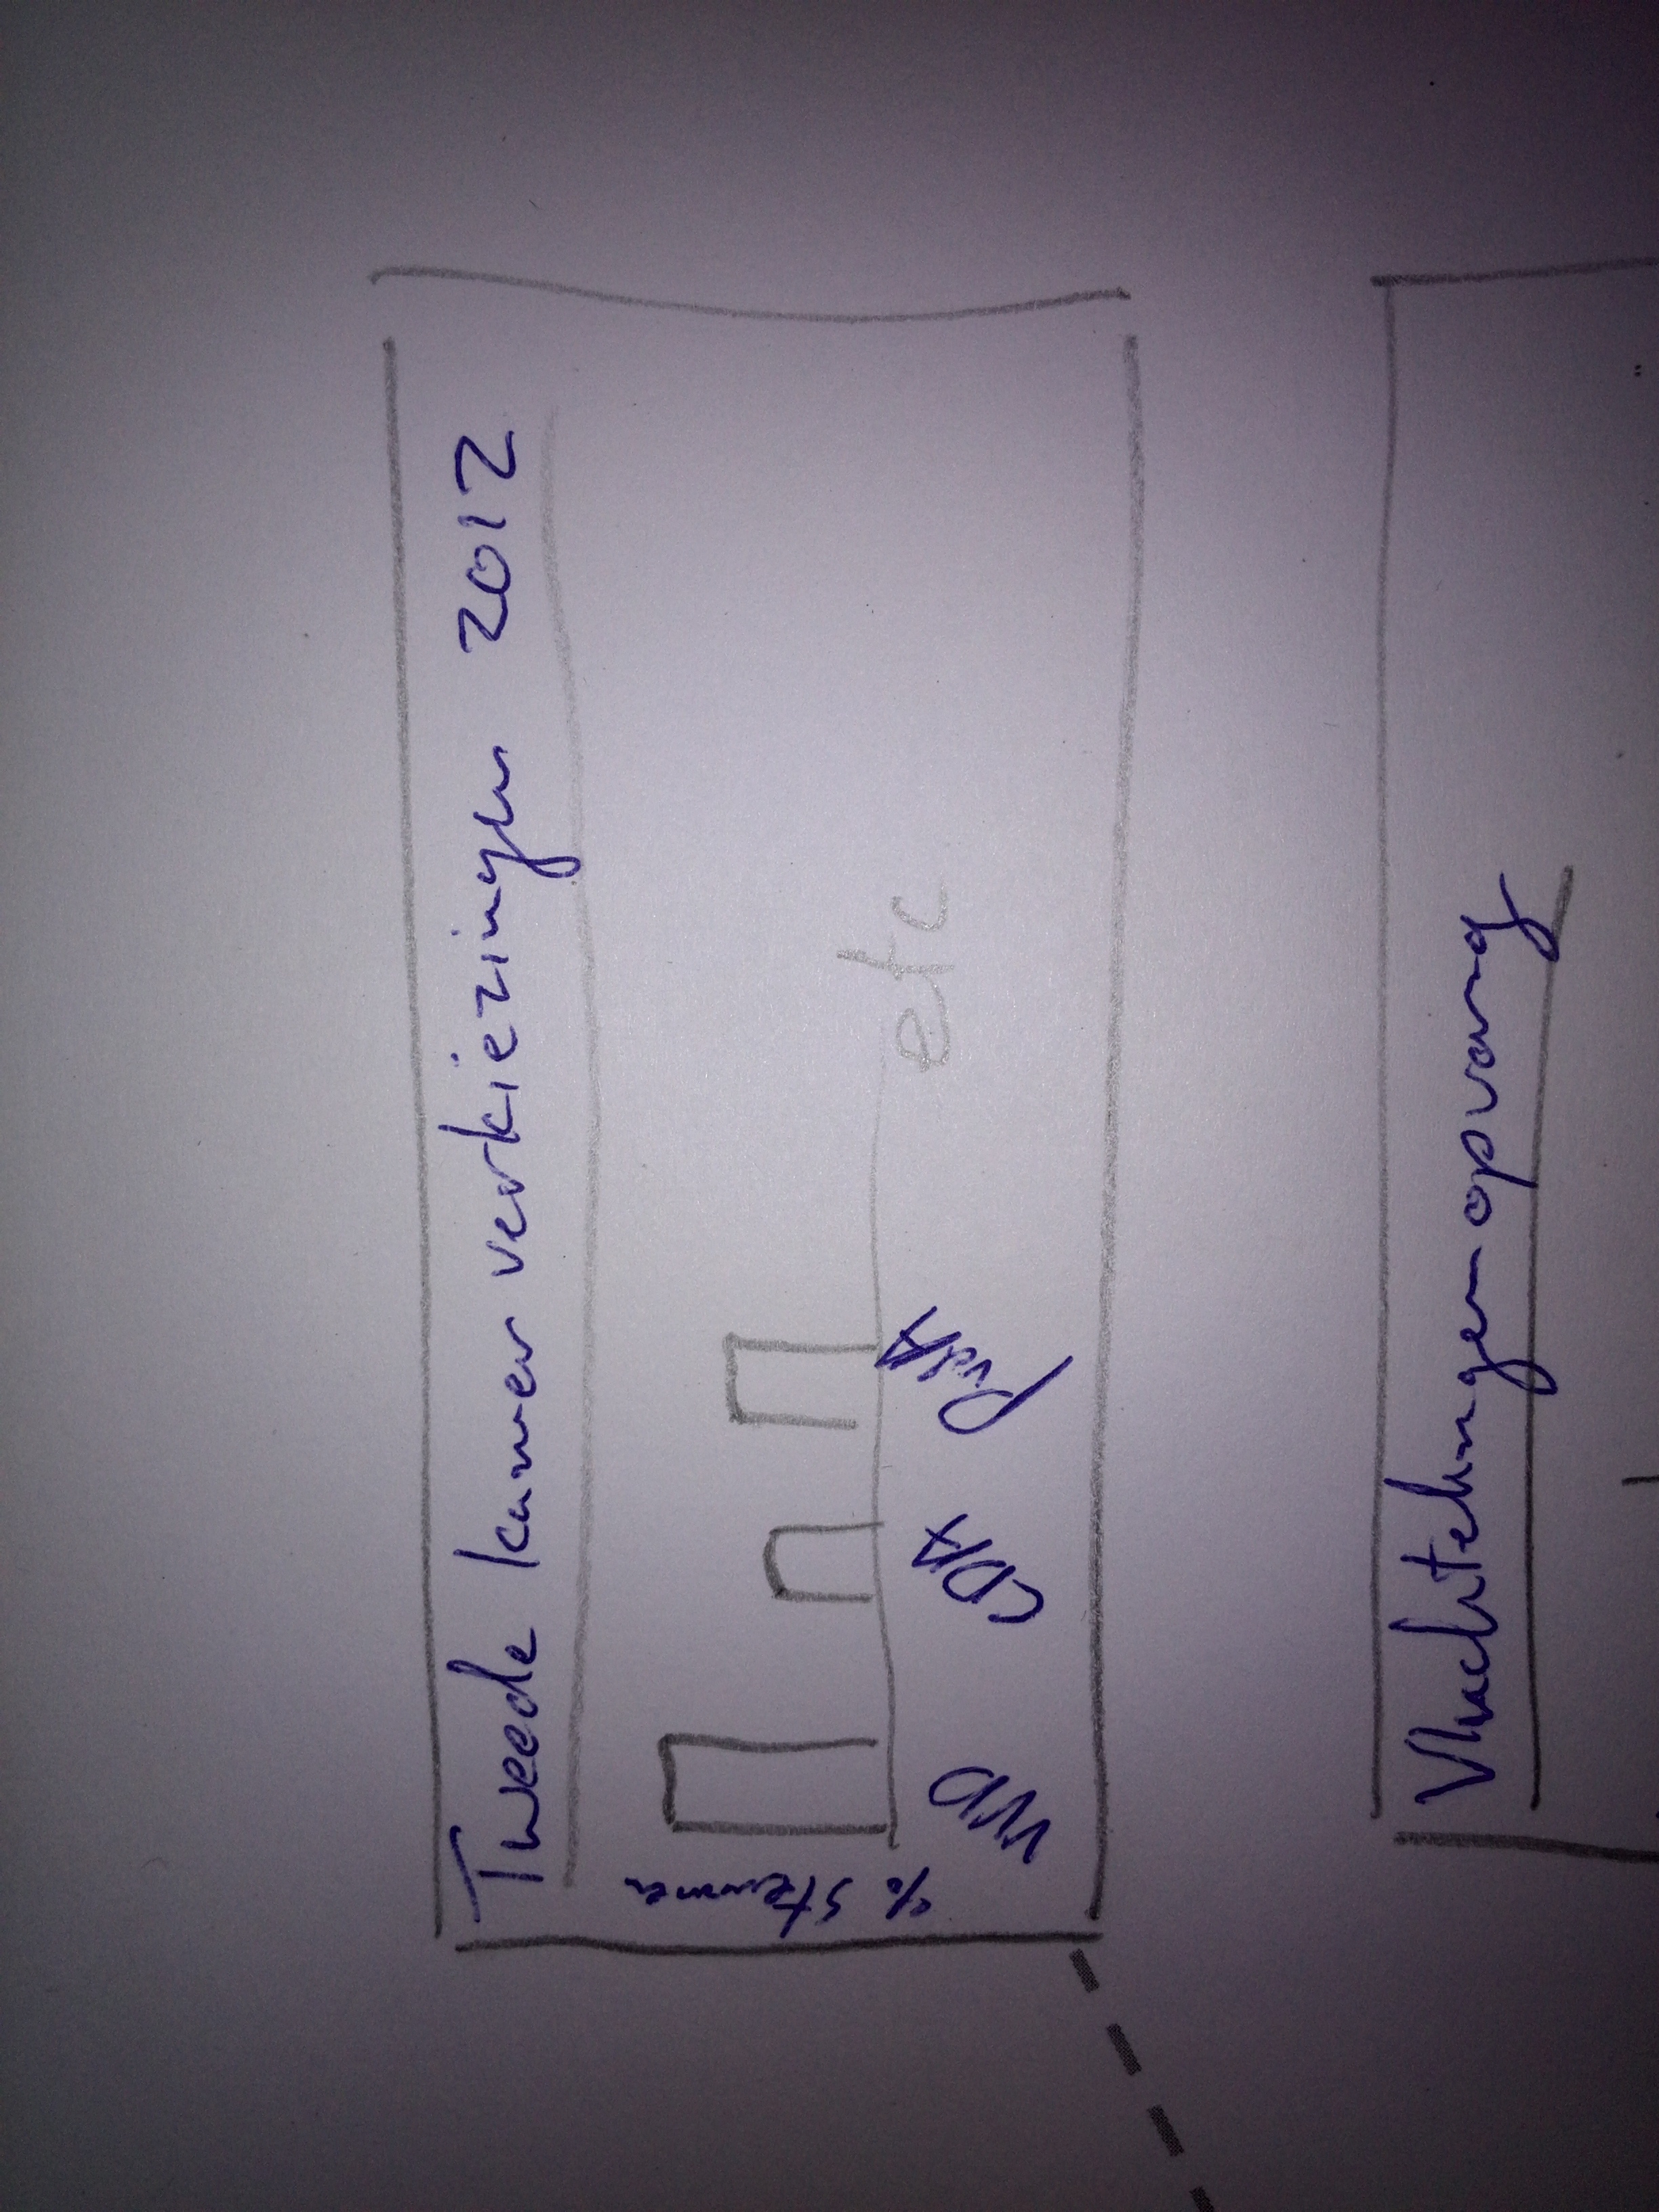 Tweede kamer verkiezingen 2012
% Stemmen
VVD CDA PvdA etc
Vluchtelingenopvang